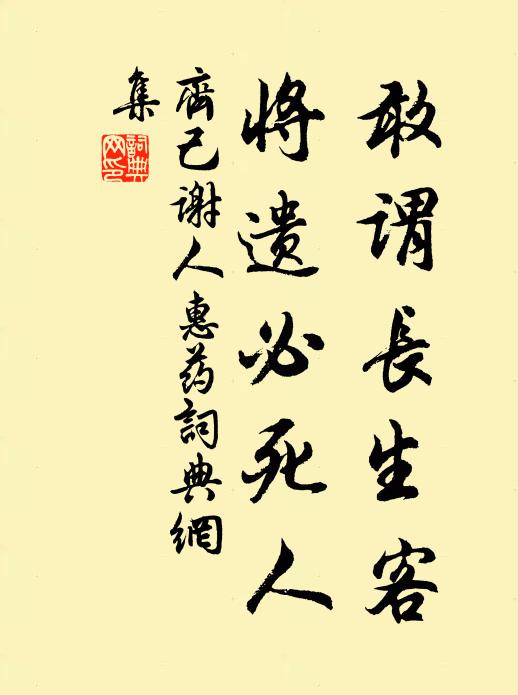 敢谓長生客
將遗必死人
齊己谢人惠药詞典網
集
詞典网印